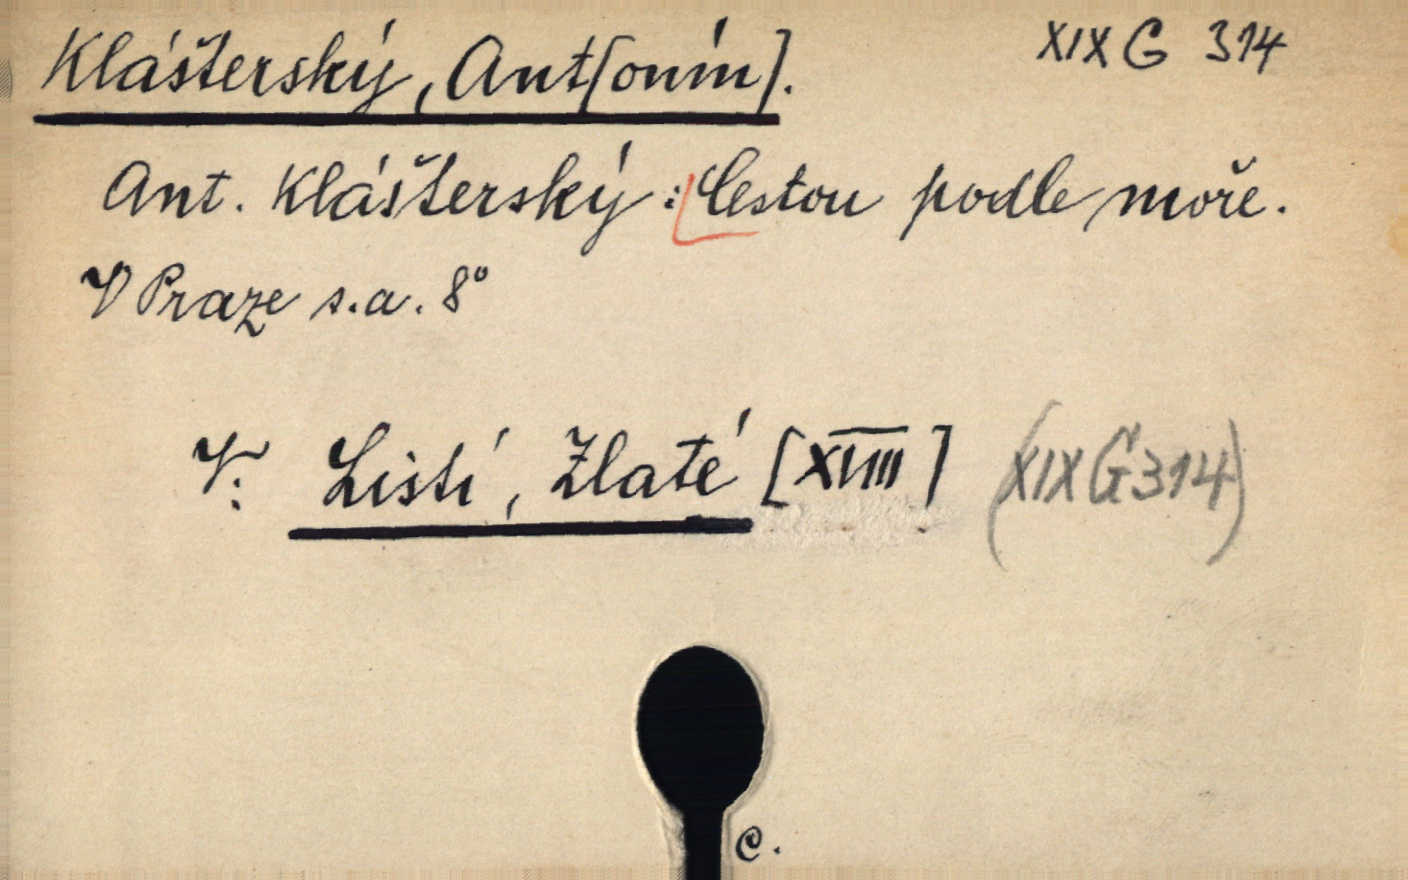 Klášterský, Ant[onín]. XIX G 314
Ant. Klášterský: Cestou podle moře.
V Praze s.a. 8°
V: Listí, Zlaté [XVIII] (XIX G 314)
C.